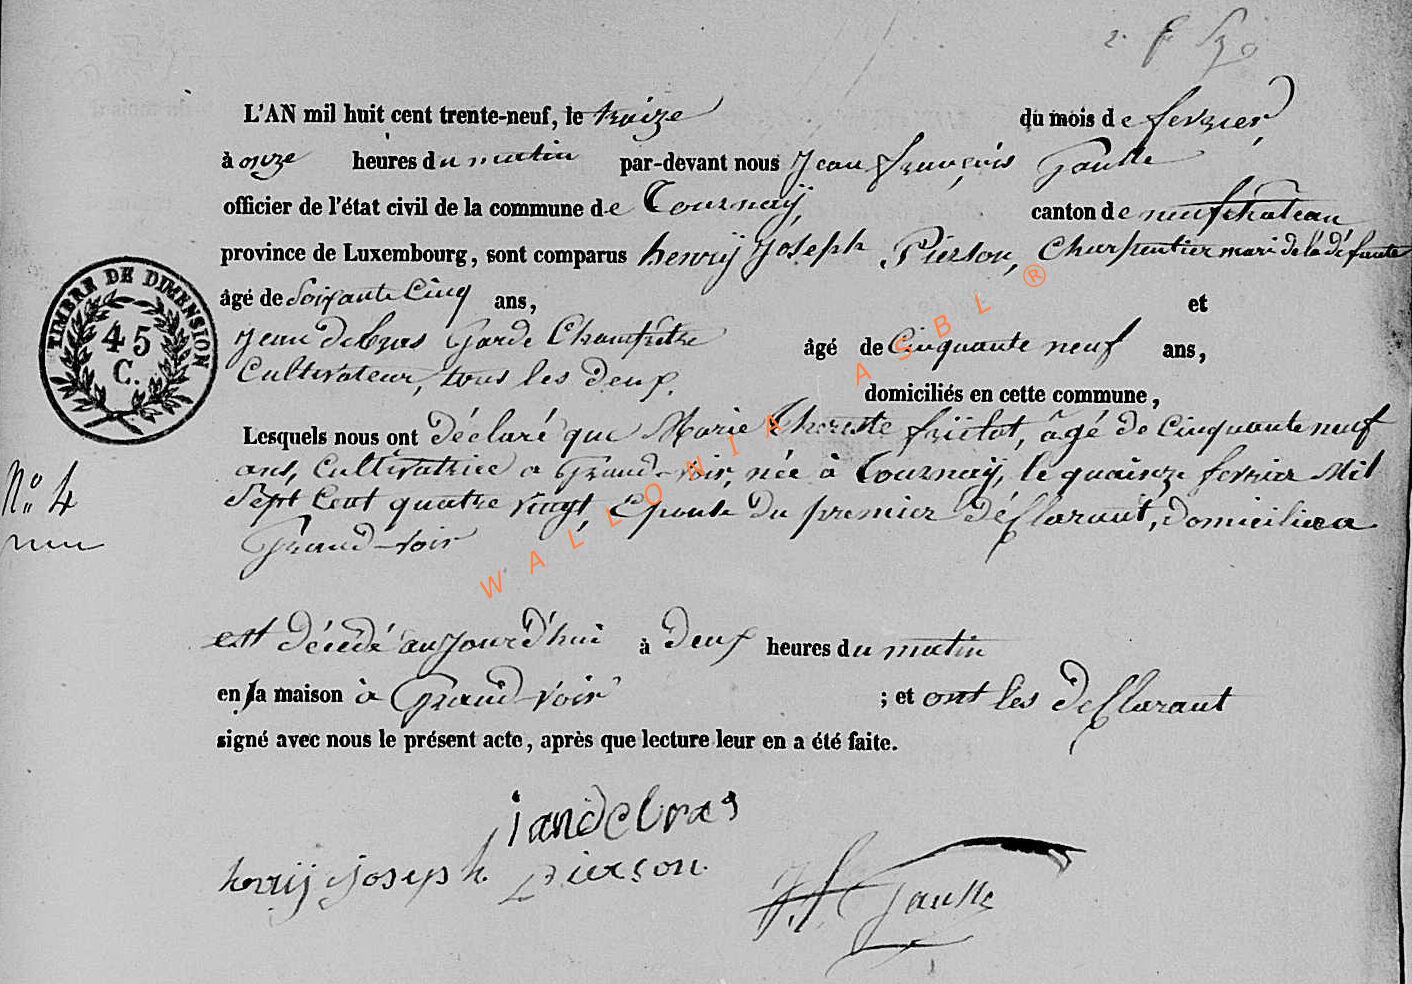 L'AN mil huit cent trente-neuf, le treize du mois de fevrier,
à onze heures du matin par-devant nous Jean françois Gausse
officier de l'état civil de la commune de Tournaÿ, canton de neufchateau
province de Luxembourg, sont comparus henrij Joseph Pierson, Charpentier mari de la défunte
âgé de Soixante Cinq ans, et
Jean debras Garde Champetre âgé de Cinquante neuf ans,
Cultivateur, tous les deux domiciliés en cette commune,
Lesquels nous ont déclaré que Marie Therese, âgé de Cinquante neuf
ans, Cultivatrice a Grand-voir, née à Tournaÿ, le quainze fevrier Mil
Sept Cent quatre vingt, Epouse du premier déClarant, domiciliee a
Grand-voir
N° 4
est décédé aujourd'hui à deux heures du matin
en sa maison à Grand-Voir ; et ont les deClarant
signé avec nous le présent acte, après que lecture leur en a été faite.
jandebras
henrij joseph Pierson
Gausse
TIMBRE DE DIMENSION
45
C.
WALLONIA ASBL ®